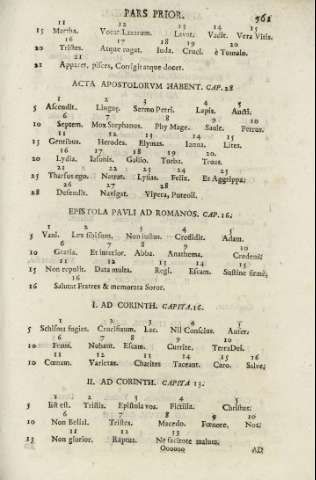 PARS PRIOR. 961
11 12 13 14 15
15 Martha. Vocat Lazarum. Lavat. Vadit. Vera Vitis.
16 17 18 19 20
20 Tristes. Atque rogat. Iuda. Cruci. è Tumulo.
21
21 Apparet, pisces, Corrigit atque docet.
ACTA APOSTOLORVM HABENT. CAP. 28
1 2 3 4 5
5 Ascendit. Linguę. Sermo Petri. Lapis.
6 7 8 9 10
10 Septem. Mox Stephanus. Phy Mage. Saule. Petrus.
11 12 13 14 15
15 Gentibus. Herodes. Elymas. Lites.
16 17 18 19 20
20 Lydia. Iasonis. Gallio. Turba. Troas.
21 22 23 24 25
25 Tharsus ego. Natus. Lysias. Felix. Et Aggrippa;
26 27 28
28 Defendit. Navigat. Vipera, Puteoli.
EPISTOLA PAVLI AD ROMANOS. CAP. 16.
1 2 3 4 5
5 Vani. Lex sibi sunt. Non iustus. Credidit. Adam.
6 7 8 9 10
10 Gratia. Et interior. Abba. Anathema. Credenti
11 12 13 14 15
15 Non repulit. Data multa. Regi. Escam. Sustine
16
16 Salutat Fratres & memorata Soror.
I. AD CORINTH. CAPITA 16.
1 2 3 4 5
5 Schisma fugies. Crucifixum. Lac. Nil Conscius. Aufer.
6 7 8 9 10
10 Frau. Nubant. Escam. Currite. Terra Dei.
11 12 13 14 15 16
16 Coenam. Varietas. Charitas Taceant. Caro. Salve.
II. AD CORINTH. CAPITA 13.
1 2 3 4 5
5 Est est. Tristis. Epistola vos. Fictilia. Christus:
6 7 8 9 10
10 Non Belial. Tristes. Macedo. Fœnore. Nos
11 12 13
13 Non glorior. Raptus. Ne facitote malum.
Oooooo AD